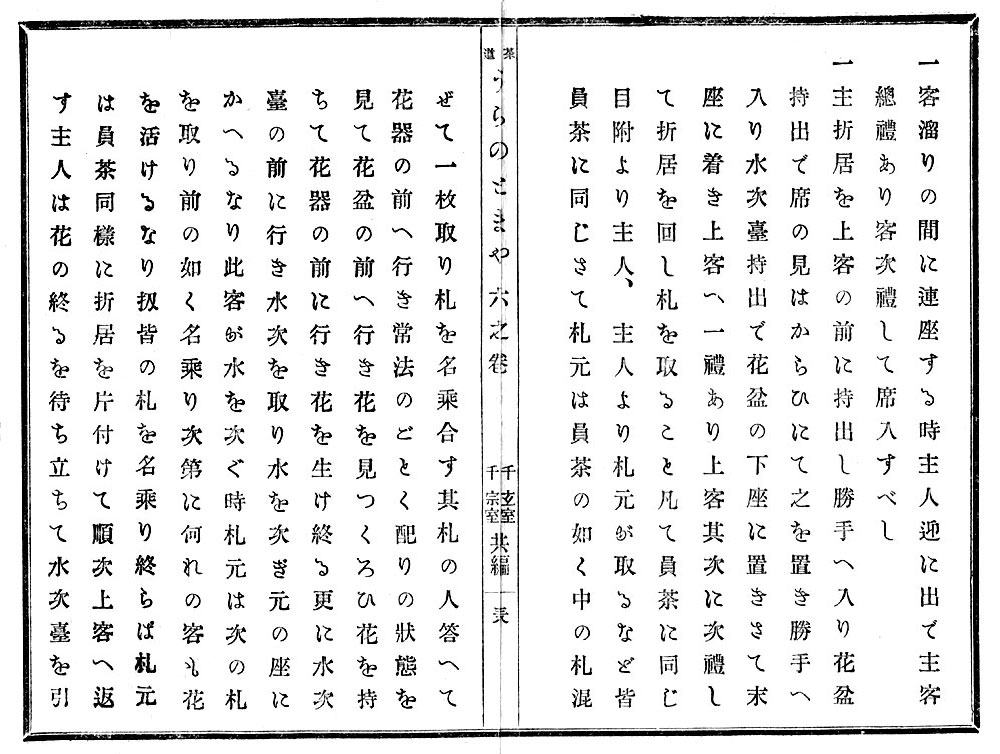 一客溜りの間に連座する時主人迎に出で主客
總禮あり客次禮して席入すべし
一主折居を上客の前に持出し勝手へ入り花盆
持出で席の見はからひにて之を置き勝手へ
入り水次臺持出で花盆の下座に置きさて末
座に着き上客へ一禮あり上客其次に次禮し
て折居を回し札を取ること凡て員茶に同じ
目附より主人、主人より札元が取るなど皆
員茶に同じさて札元は員茶の如く中の札混
茶道うらのとまや六之卷
千玄室
千宗室
共編
ぜて一枚取り札を名乘合す其札の人答へて
花器の前へ行き常法のごとく配りの狀態を
見て花盆の前へ行き花を見つくろひ花を持
ちて花器の前に行き花を生け終る更に水次
臺の前に行き水次を取り水を次ぎ元の座に
かへるなり此客が水を次ぐ時札元は次の札
を取り前の如く名乘り次第に何れの客も花
を活けるなり扱皆の札を名乘り終らば札元
は員茶同樣に折居を片付けて順次上客へ返
す主人は花の終るを待ち立ちて水次臺を引